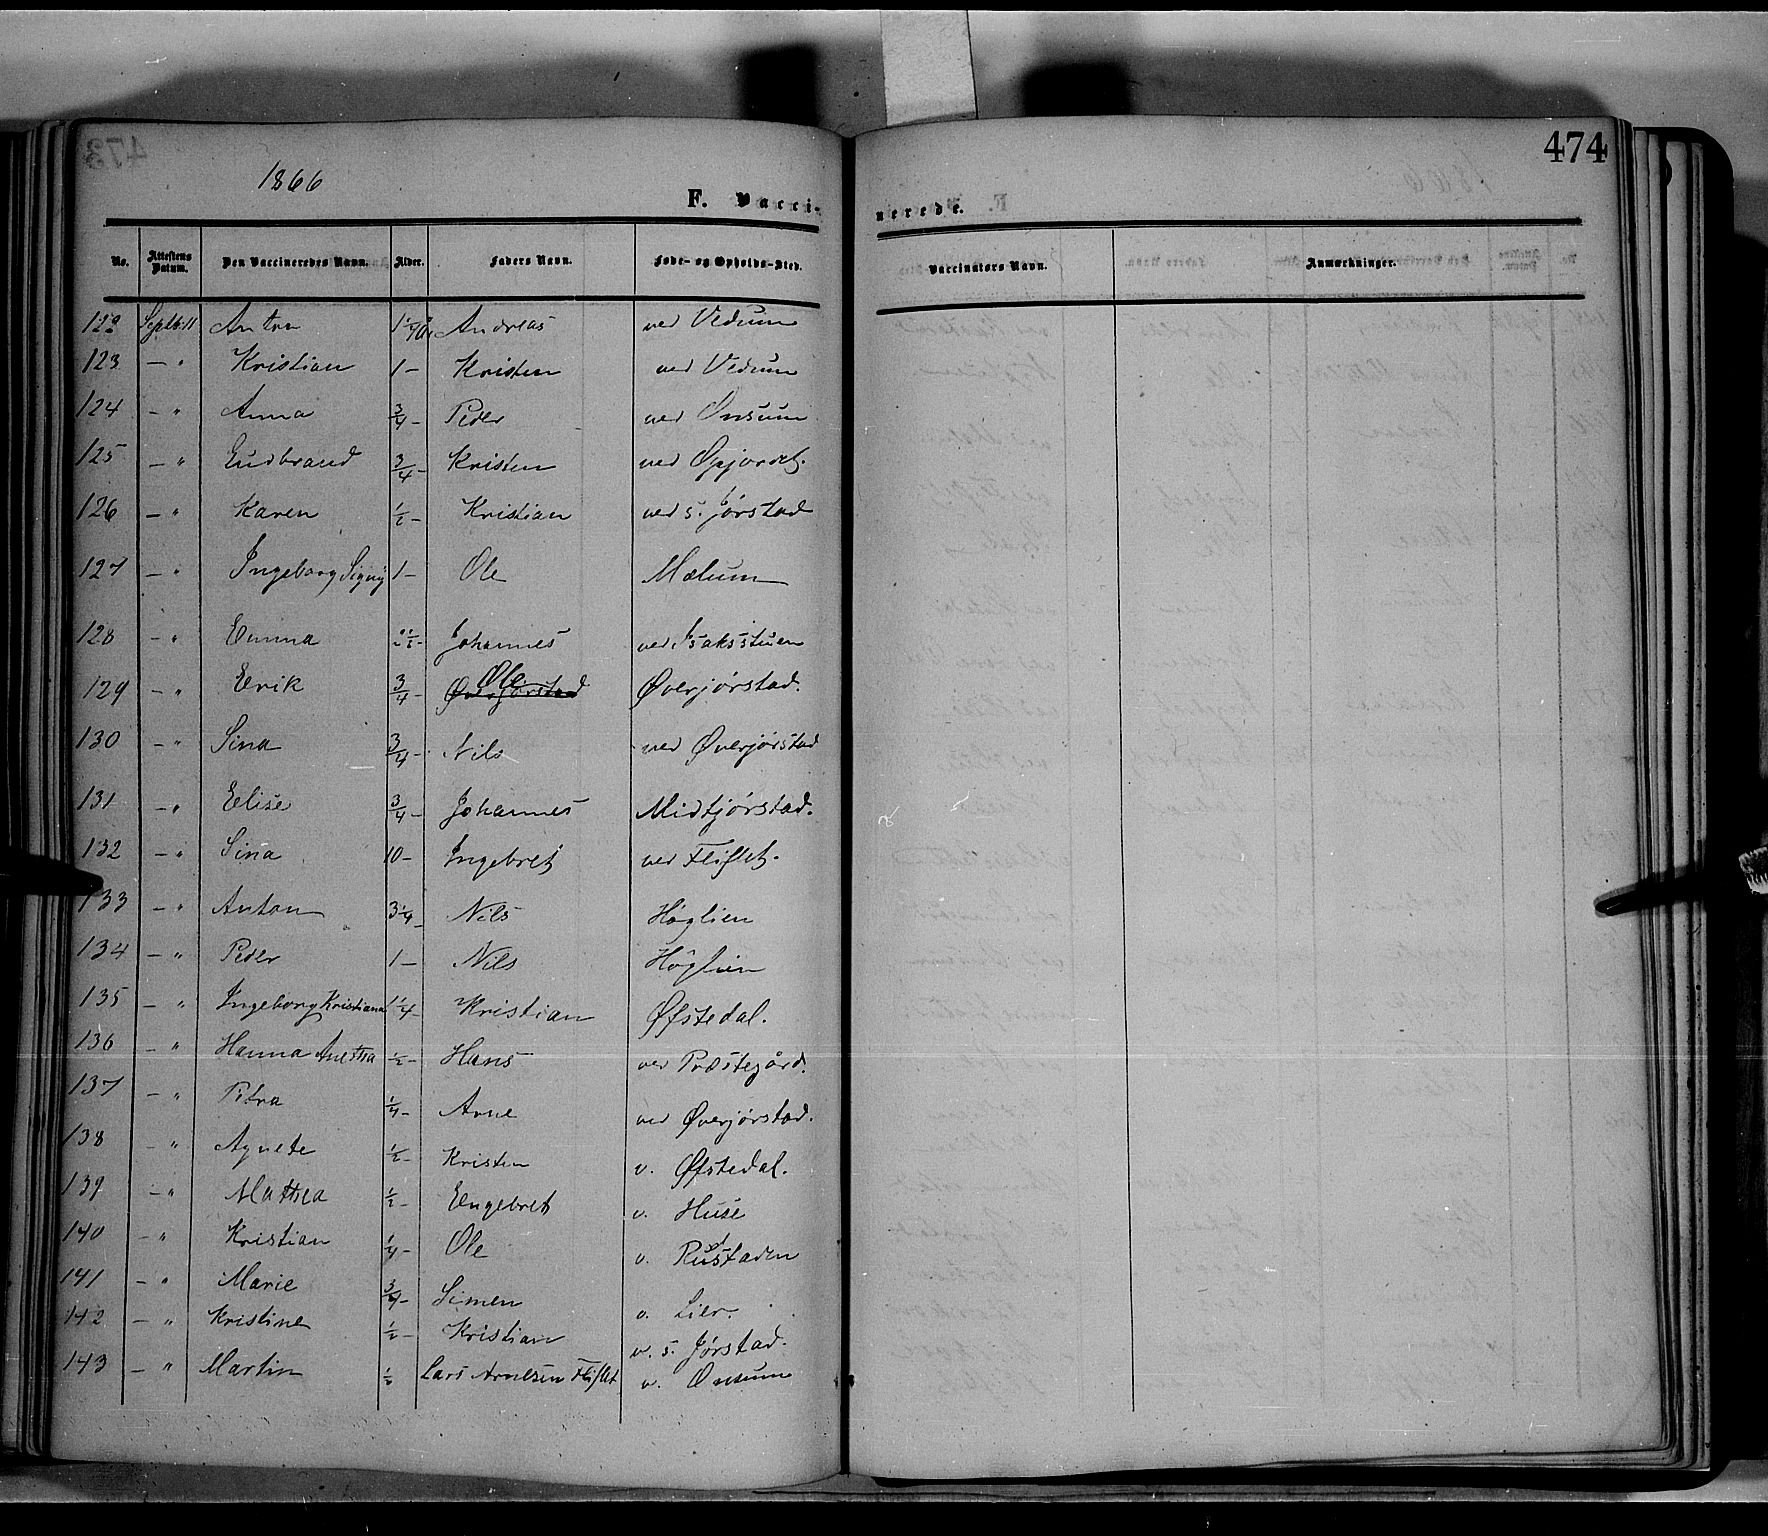 474
1866
F. Vacci-
nerede.
No. Attestens Datum. Den Vaccineredes Navn. Alder. Faders Navn. Føde- og Opholds-Sted. Vaccinators Navn. Anmærkninger.
122 Septbr 11 Anton Andreas ved Vedum
123 — " Kristian 1 — Kristen ved Vedum
124 — " Anna 3/4 — Peder ved Onsum
125 — " Gudbrand 3/4 — Kristen ved Opjordet.
126 — " Karen 1/2 — Kristian ved s. Jørstad
127 — " Ingeborg Signy 1 — Ole Mælum
128 — " Emma 2 1/2 — Johannes ved Isaksstuen
129 — " Erik 3/4 — Øverjørstad Ole Øverjørstad.
130 — " Sina 3/4 — Nils ved Øverjørstad
131 — " Elise 3/4 — Johannes Midtjørstad.
132 — " Sina 10 — Ingebret ved Fliflet.
133 — " Anton 3 1/4 — Nils Høglien
134 — " Peder 1 — Nils Høglien
135 — " Ingeborg Kristiana 1 1/4 — Kristian Øfstedal.
136 — " Hanna Anethea 1/2 — Hans ved Præstegård.
137 — " Petra 1/4 — Arne ved Øverjørstad.
138 — " Agnete 1/2 — Kristen v. Øfstedal.
139 — " Mathea 1/2 — Engebret v. Huse
140 — " Kristian 1/4 — Ole v. Rustaden
141 — " Marie 3/4 — Simen v. Lier.
142 — " Kristine 1/2 — Kristian v. s. Jørstad.
143 — " Martin 1/2 Lars Arnesen Fliflet v. Onsum